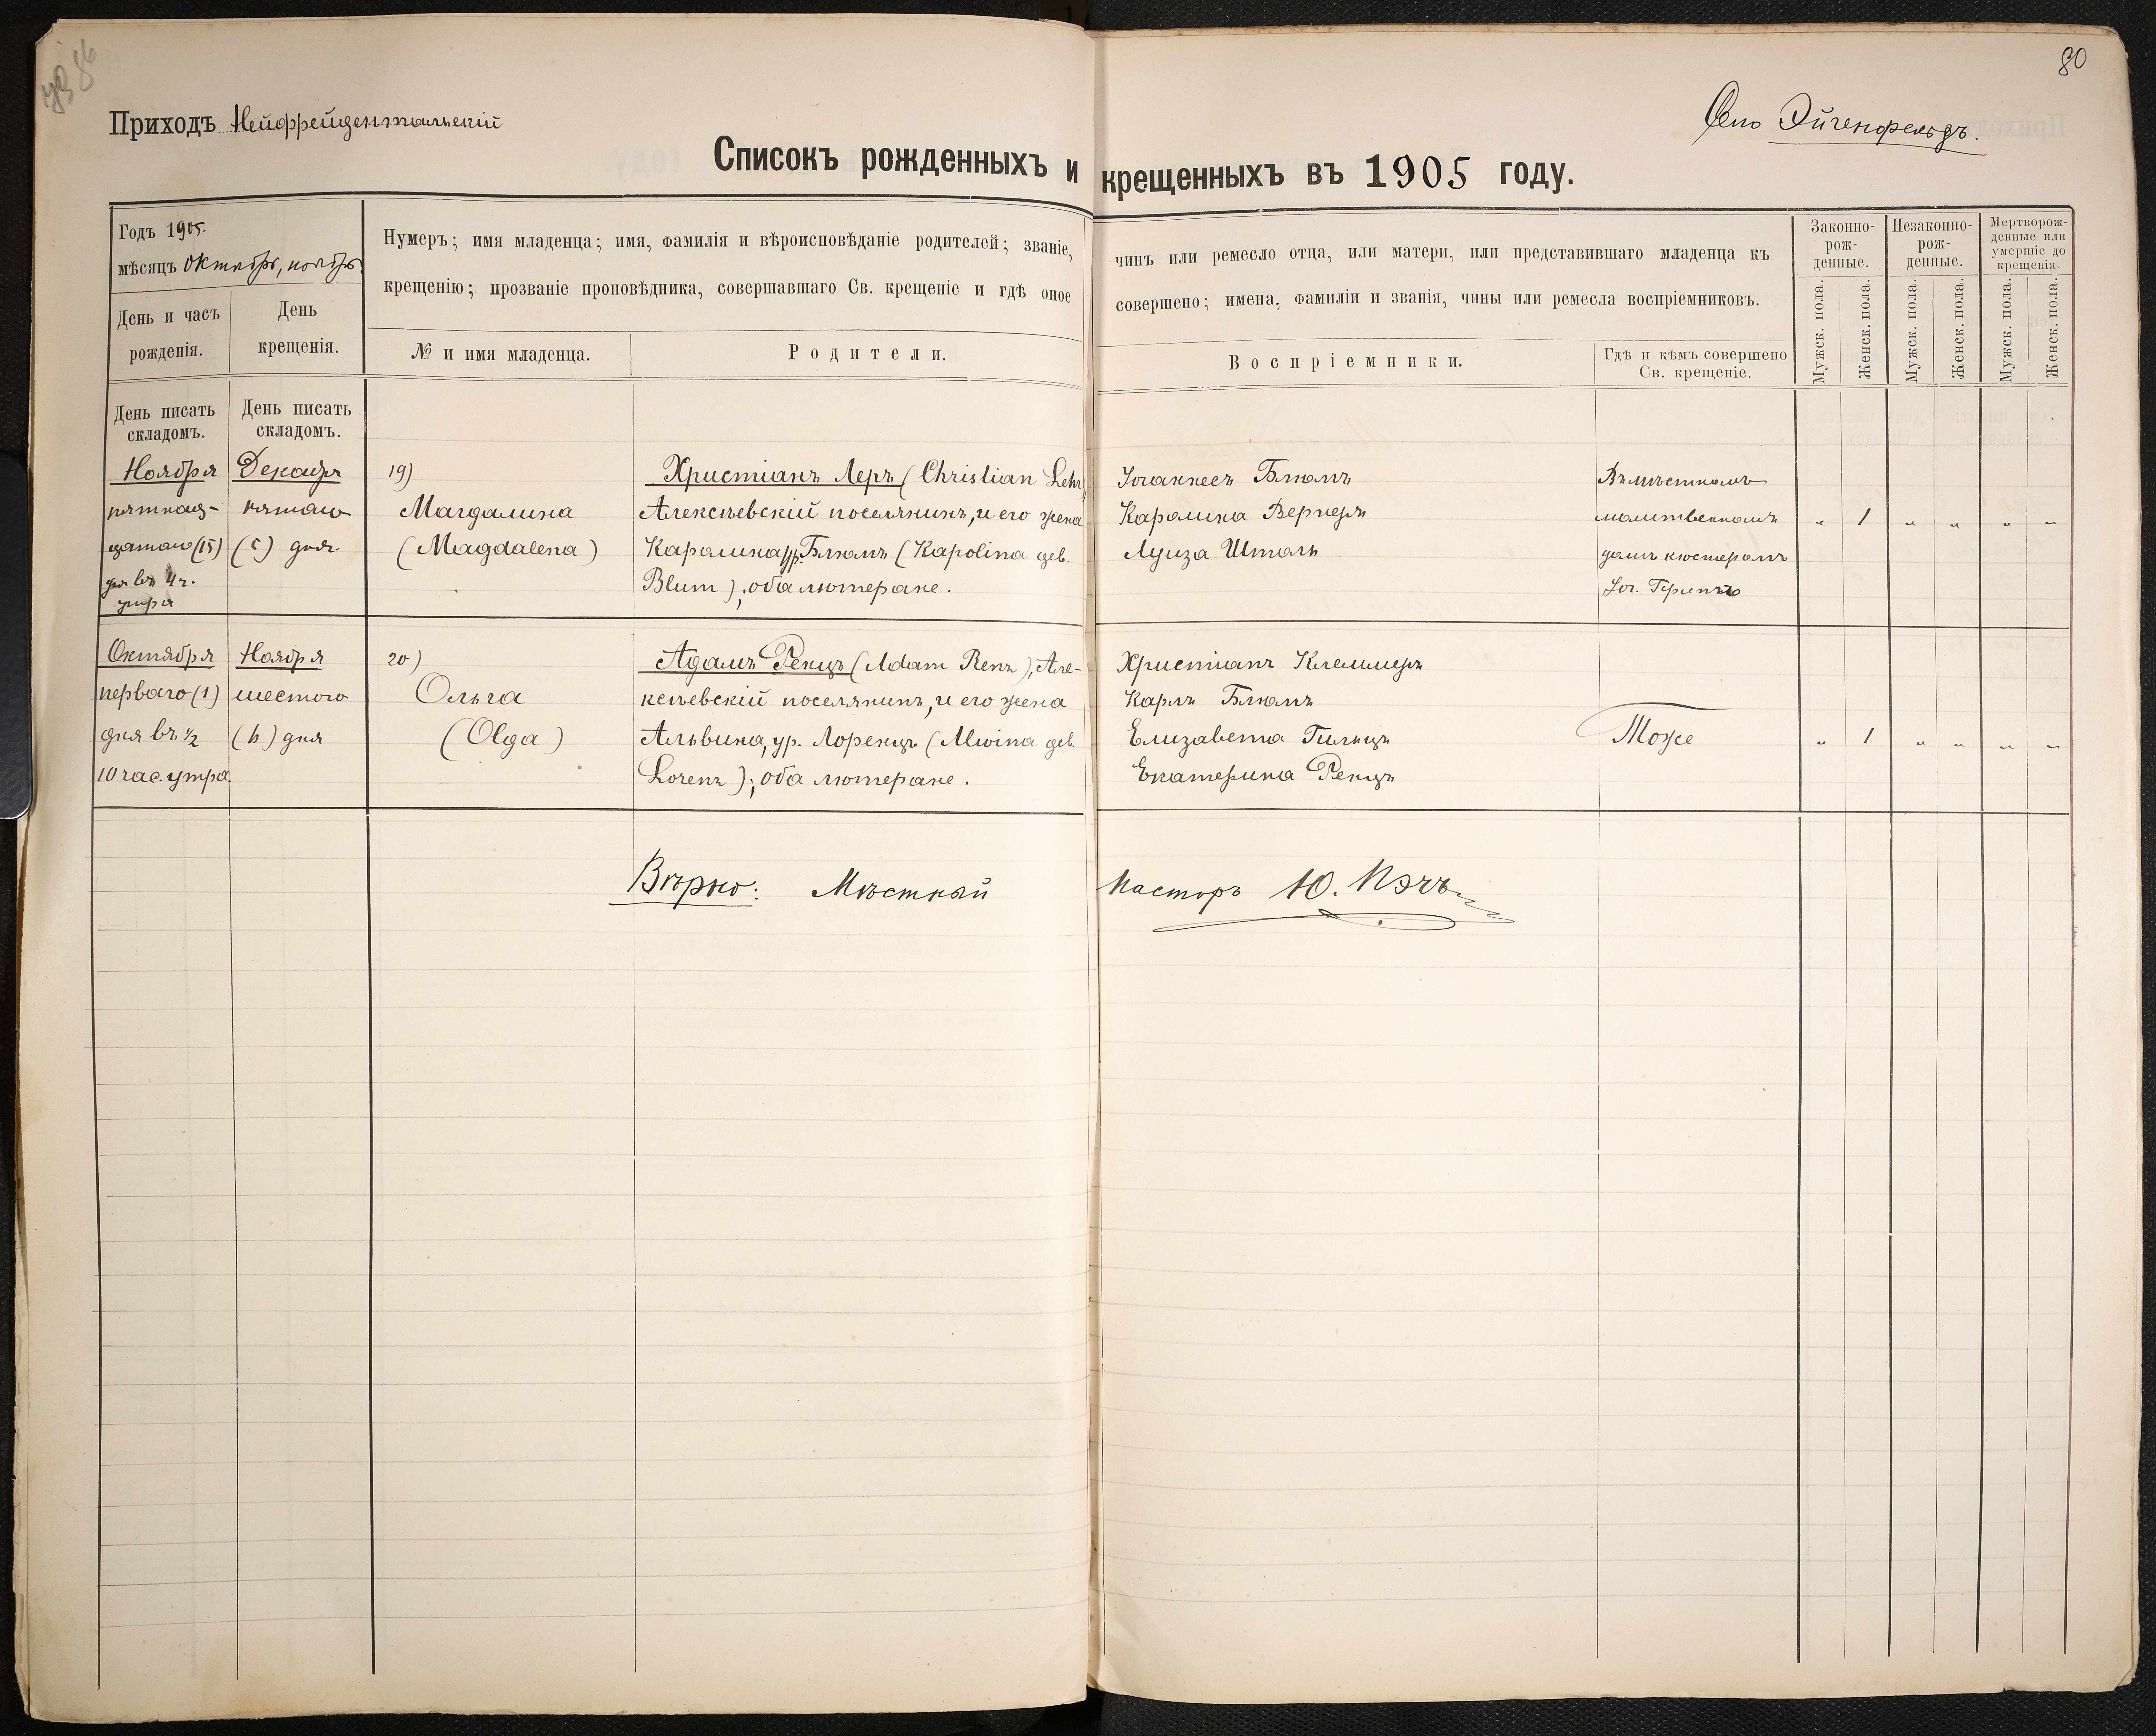 80
Приходъ Нейфрейдентальскій
Село Эйгенфельдъ.
Списокъ рожденныхъ и крещенныхъ въ 1905 году.
Годъ 1905.
мѣсяцъ октябрь, ноябрь.
День и часъ рожденія.
День крещенія.
Нумеръ; имя младенца; имя, фамилія и вѣроисповѣданіе родителей; званіе, чинъ или ремесло отца, или матери, или представившаго младенца къ
крещенію; прозваніе проповѣдника, совершавшаго Св. крещеніе и гдѣ оное совершено; имена, фамиліи и званія, чины или ремесла воспріемниковъ.
№ и имя младенца.
Родители.
Воспріемники.
Гдѣ и кѣмъ совершено
Св. крещеніе.
Законно-
рож-
денные.
Незаконно-
рож-
денные.
Мертворож-
денные или
умершіе до
крещенія.
Мужск. пола.
Женск. пола.
Мужск. пола.
Женск. пола.
Мужск. пола.
Женск. пола.
День писать
складомъ.
День писать
складомъ.
Ноября
пятнад-
цатаго (15)
дня въ 4 ч.
утра
Декабря
пятаго
(5) дня
19)
Магдалина
(Magdalena)
Христіанъ Леръ (Christian Lehr)
Алексѣевскій поселянинъ, и его жена
Каролина ур. Блюмъ (Karolina geb.
Blum); оба лютеране.
Іоганнесъ Блюмъ
Каролина Вернеръ
Луиза Шталь
Въ мѣстномъ
молитвенномъ
домѣ кюстеромъ
Іог.
„ 1 „ „ „ „
Октября
перваго (1)
дня въ ½
10 час. утра
Ноября
шестого
(6) дня
20)
Ольга
(Olga)
Адамъ Ренцъ (Adam Renz), Але-
ксѣевскій поселянинъ, и его жена
Альвина, ур. Лоренцъ (Alwina geb.
Lorenz); оба лютеране.
Христіанъ Клеммеръ
Карлъ Блюмъ
Елизавета Гильцъ
Екатерина Ренцъ
Тоже
„ 1 „ „ „ „
Вѣрно: Мѣстный Пасторъ Ю. Пэчъ